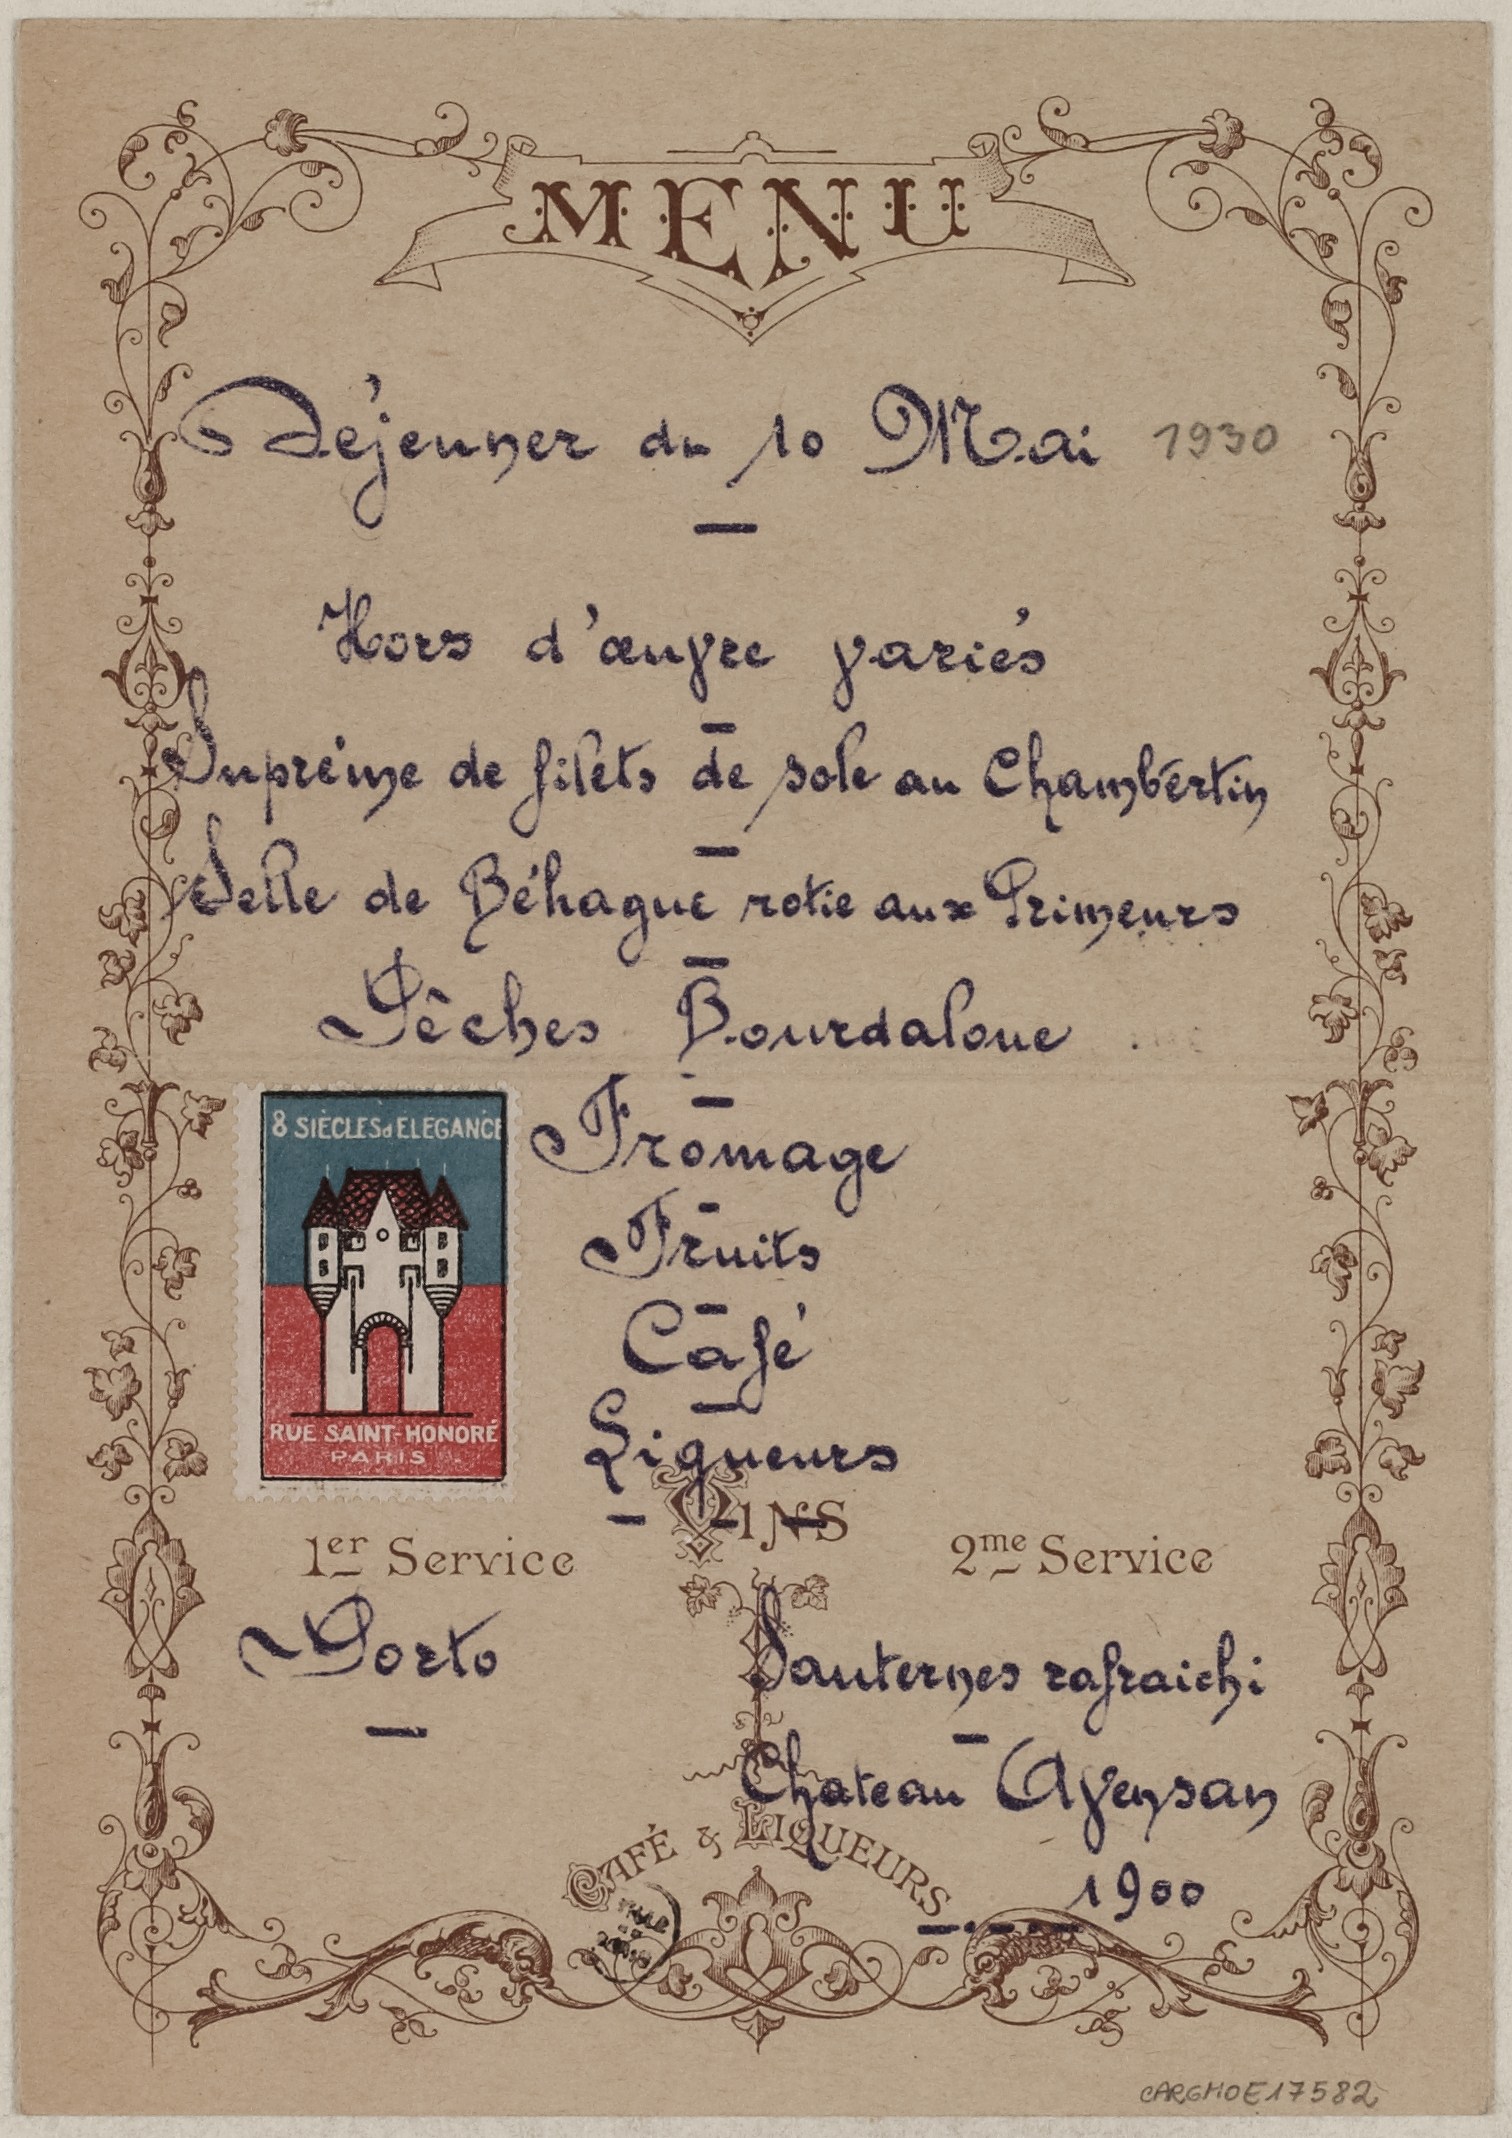 MENU
Déjeuner du 10 Mai 1930
Hors d'œuvre variés
Suprême de filets de sole au Chambertin
Selle de Béhague rotie aux Primeurs
Pêches Bourdaloue
8 SIÈCLES d ELEGANCE
RUE SAINT-HONORÉ
PARIS
Fromage
Fruits
Café
Liqueurs
VINS
1er Service
2me Service
Porto
Sauternes rafraichi
Chateau Avensan
1900
CAFÉ & LIQUEURS
CARGHOE17582